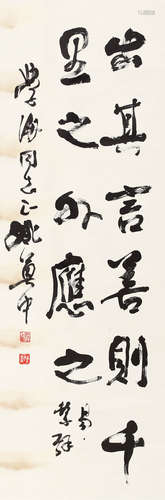 出其言善則千
里之外應之
易·繫辭
學淵同志正 姚奠中